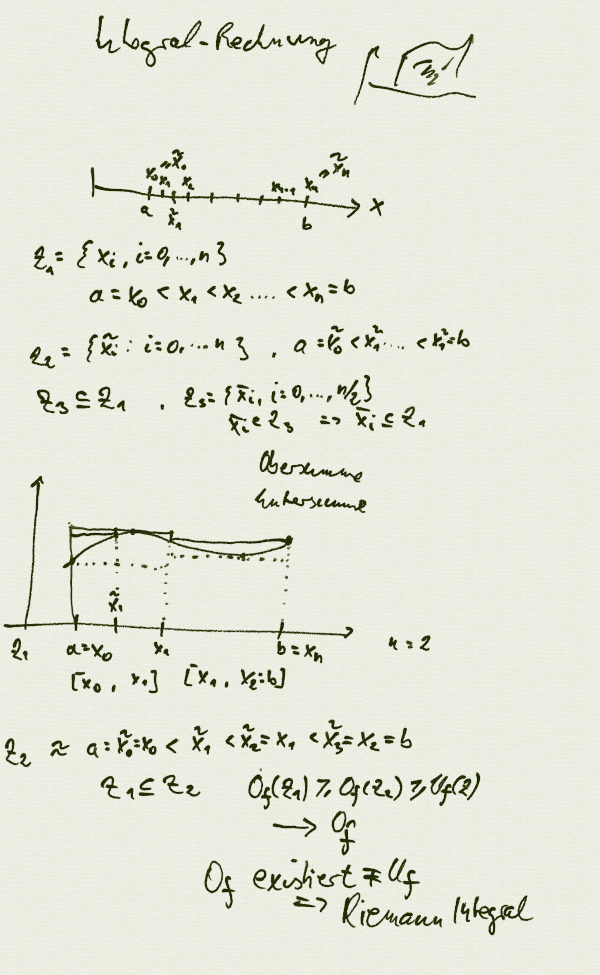 Integral-Rechnung
x₀ x₁ = x̃₀ x₂ xₙ₋₁ xₙ = x̃ₙ
a x̃₁ b x
Z₁ = { xᵢ, i=0,...,n }
a = x₀ < x₁ < x₂ .... < xₙ = b
Z₂ = { x̃ᵢ : i=0,...n } , a = x̃₀ < x̃₁ .... <
Z₃ ⊆ Z₁ , Z₃ = { x̄ᵢ, i=0,..., n/2 }
x̄ᵢ ∈ Z₃ => x̄ᵢ ⊆ Z₁
Obersumme
Untersumme
x̃₁
Z₁ a=x₀ x₁ b=xₙ n=2
[x₀, x₁] [x₁, x₂=b]
Z₂ ≈ a = x̃₀=x₀ < x̃₁ < x̃₂=x₁ < x̃₃=x₂=b
Z₁ ⊆ Z₂ O_f(Z₁) ≥ O_f(Z₂) ≥ U_f(Z)
→ O_f
O_f existiert = U_f
=> Riemann Integral